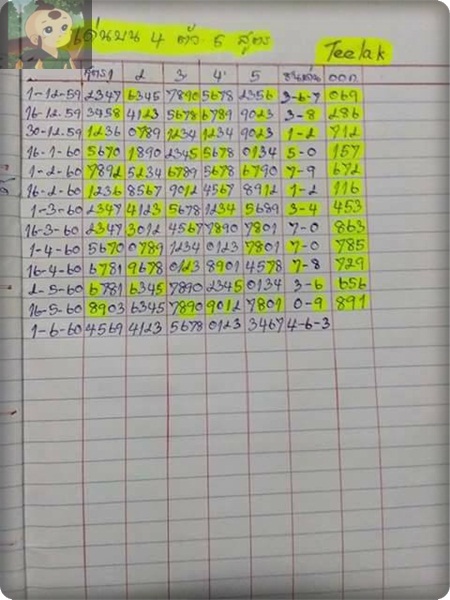 เด่นบน 4 ตัว 5 สูตร
Teelak
สูตร1 2 3 4 5 ชนเด่น ออก
1-12-59 2347 6345 7890 5678 2356 3-6-7 069
16-12-59 3458 4123 5678 6789 9023 3-8 286
30-12-59 1236 0789 1234 1234 9023 1-2 712
16-1-60 5670 1890 2345 5678 0134 5-0 157
1-2-60 7892 5234 6789 5678 6790 7-9 672
16-2-60 1236 8567 9012 4567 8912 1-2 116
1-3-60 2347 4123 5678 1234 5689 3-4 453
16-3-60 2347 3012 4567 7890 7801 7-0 863
1-4-60 5670 0789 1234 0123 7801 7-0 785
16-4-60 6781 9678 0123 8901 4578 7-8 729
2-5-60 6781 6345 7890 2345 0134 3-6 656
16-5-60 8903 6345 7890 9012 7801 0-9 891
1-6-60 4569 4123 5678 0123 3467 4-6-3